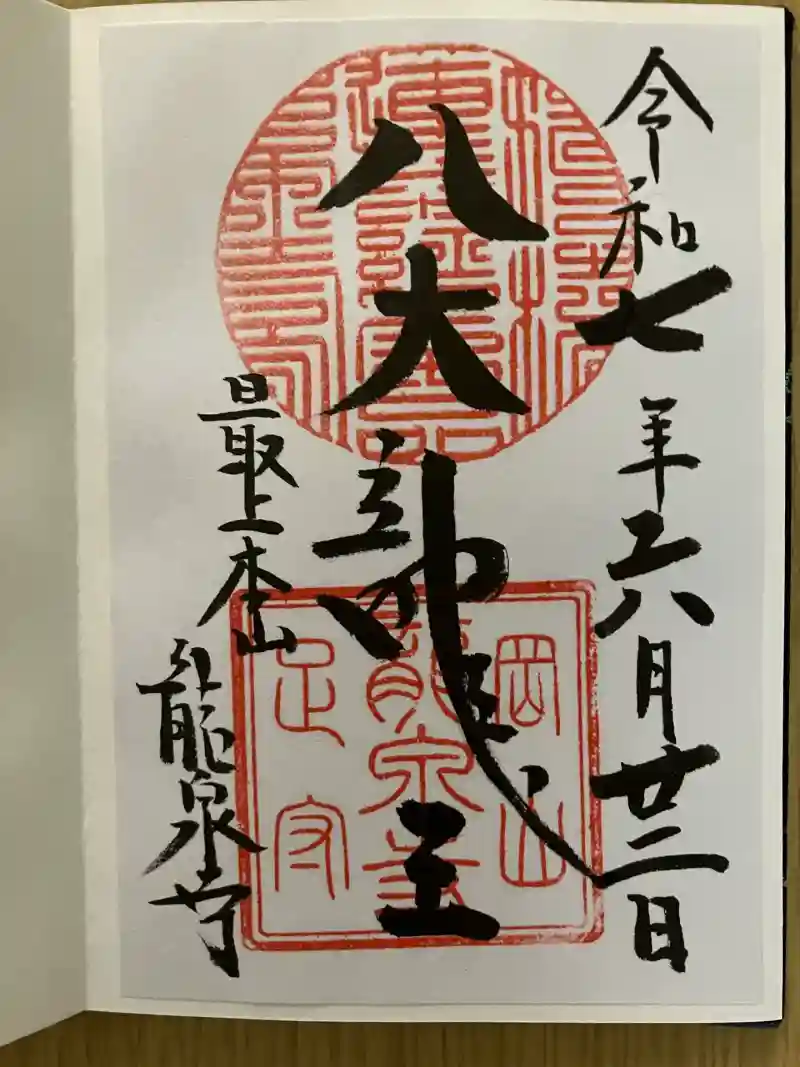 令和七年六月廿二日
八大龍王
最上本山
龍泉寺
岡山
龍泉寺
足守